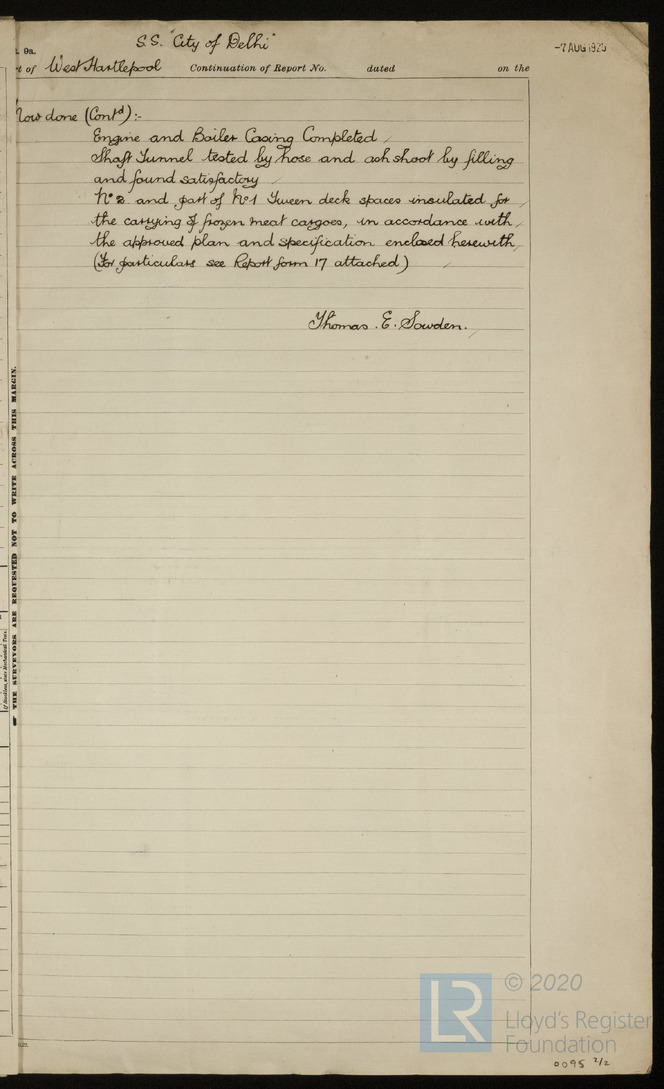 S.S. "City of Delhi"
-7 AUG 1925
t. 9a.
rt of West Hartlepool Continuation of Report No. dated on the
Now done (Contd):-
Engine and Boiler Casing Completed
Shaft Tunnel tested by hose and ash shoot by filling
and found satisfactory
No 2 and part of No 1 Tween deck spaces insulated for
the carrying of frozen meat cargoes, in accordance with
the approved plan and specification enclosed herewith
(For particulars see Report form 17 attached)
Thomas. E. Sowden.
THE SURVEYORS ARE REQUESTED NOT TO WRITE ACROSS THIS MARGIN.
LR
© 2020
Lloyd's Register
Foundation
0095 2/2